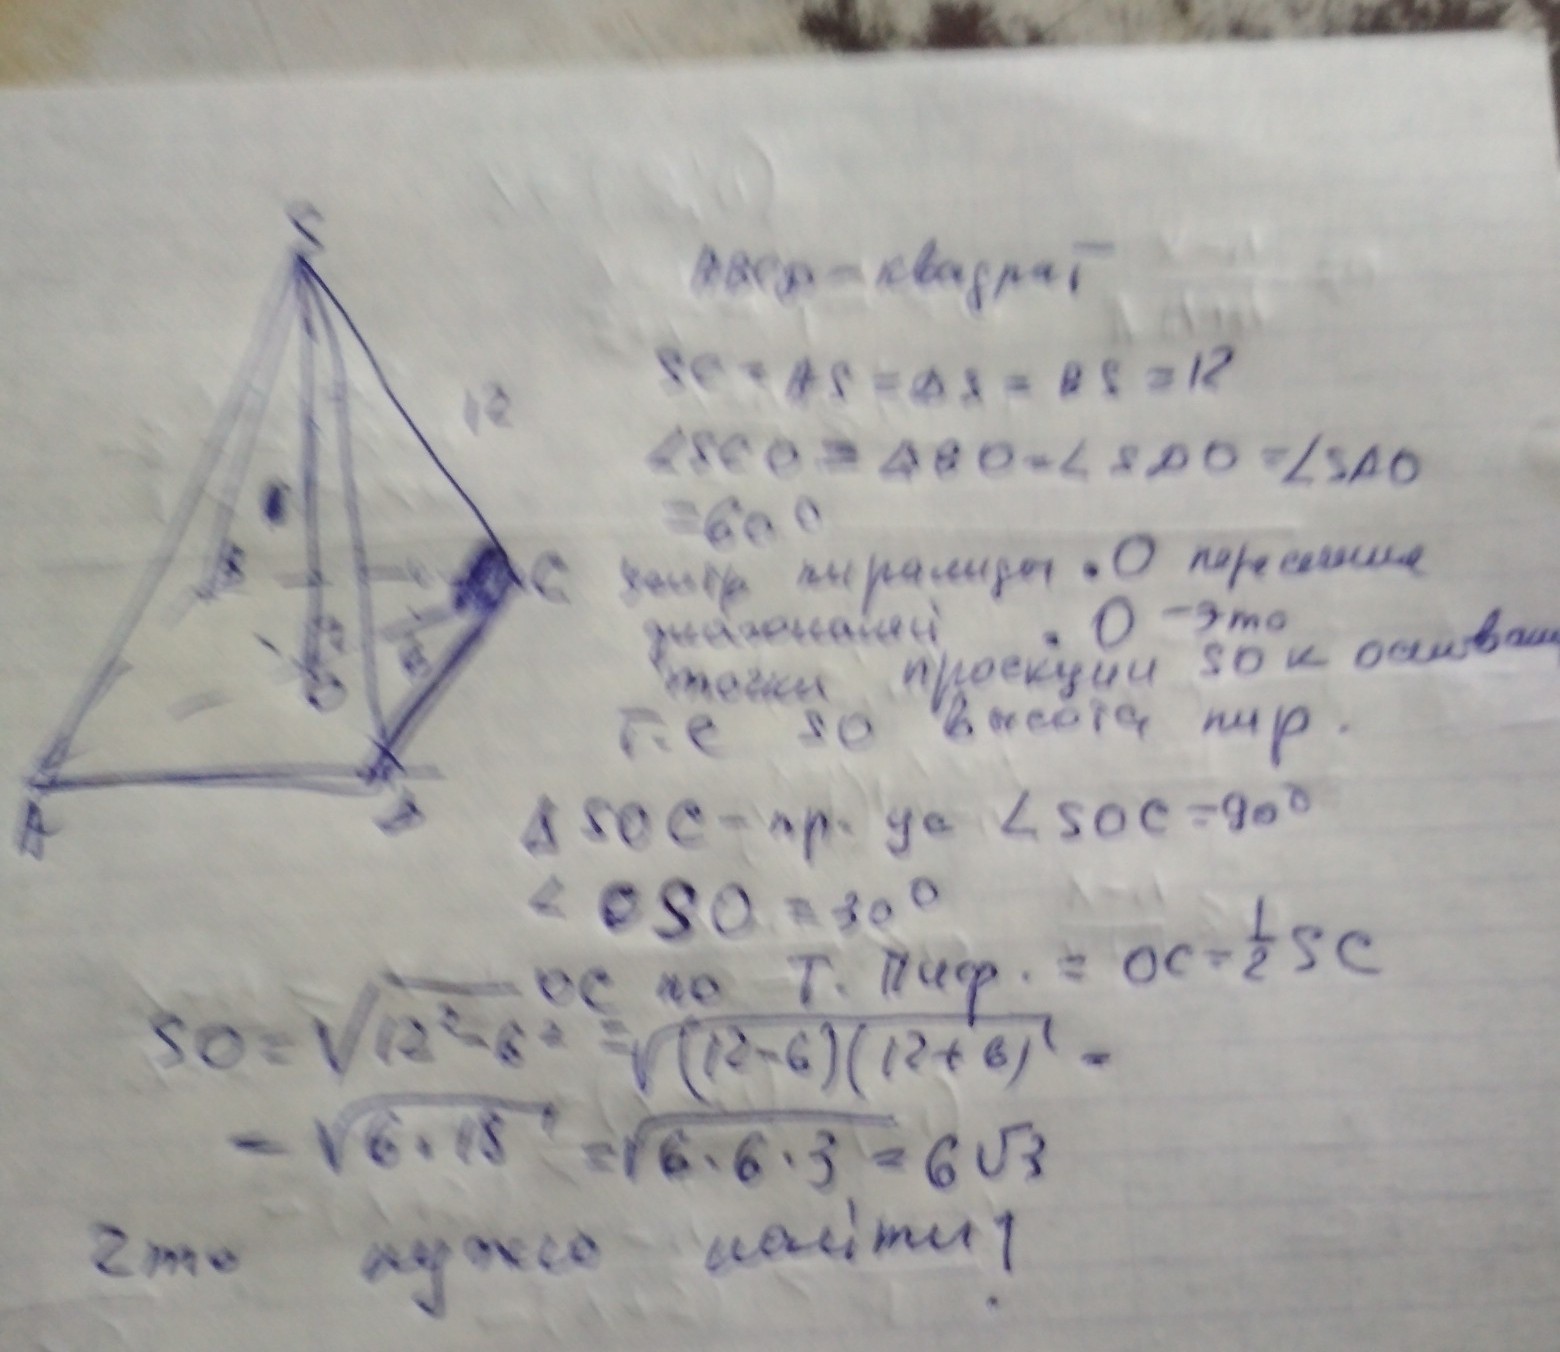 S
12
C
O
A
ABCD - квадрат
SC = AS = DS = BS = 12
∠SCO = ∆BO = ∠SDO = ∠SAO
= 60°
центр пирамиды .O пересечения
диагоналей .O - это
точки проекции SO к основани
Т.е SO высота пир.
∆ SOC - пр. уг ∠SOC = 90°
∠ OSO = 30°
OC по Т. Пиф. = OC = 1/2 SC
SO = √12² - 6² = √(12-6)(12+6) =
= √6·18 = √6·6·3 = 6√3
Что нужно найти?